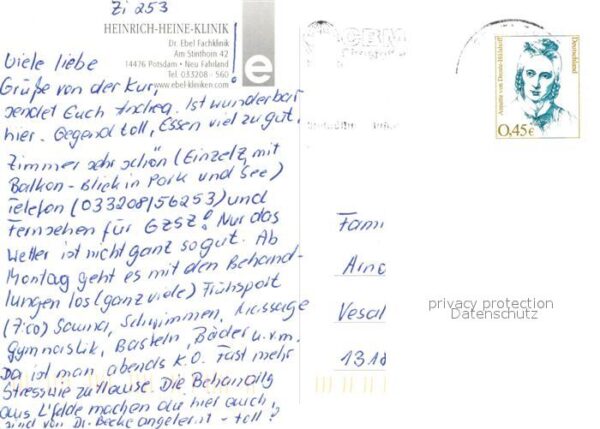 Zi 253
HEINRICH-HEINE-KLINIK
Dr. Ebel Fachklinik
Am Stinthorn 42
14476 Potsdam • Neu Fahrland
Tel. 033208 - 560
www.ebel-kliniken.com
e
Viele liebe
Grüße von der Kur,
sendet Euch Andrea. Ist wunderbar
hier. Gegend toll, Essen viel zu gut,
Zimmer sehr schön (Einzelz. mit
Balkon - Blick in Park und See)
Telefon (033208/56253) und
Fernsehen für GZSZ! Nur das
Wetter ist nicht ganz so gut. Ab
Montag geht es mit den Behand-
lungen los (ganz viele) Frühsport
(7:00) Sauna, Schwimmen, Massage
Gymnastik, Basteln, Bäder u.v.m.
Da ist man abends K.O. Fast mehr
Stress wie zuhause. Die Behandlg
aus L'felde machen die hier auch,
sind von Dr. Becke angelernt - toll?
Annette von Droste-Hülshoff
Deutschland
0,45€
Fami
Arno
Vesal
1318
privacy protection
Datenschutz